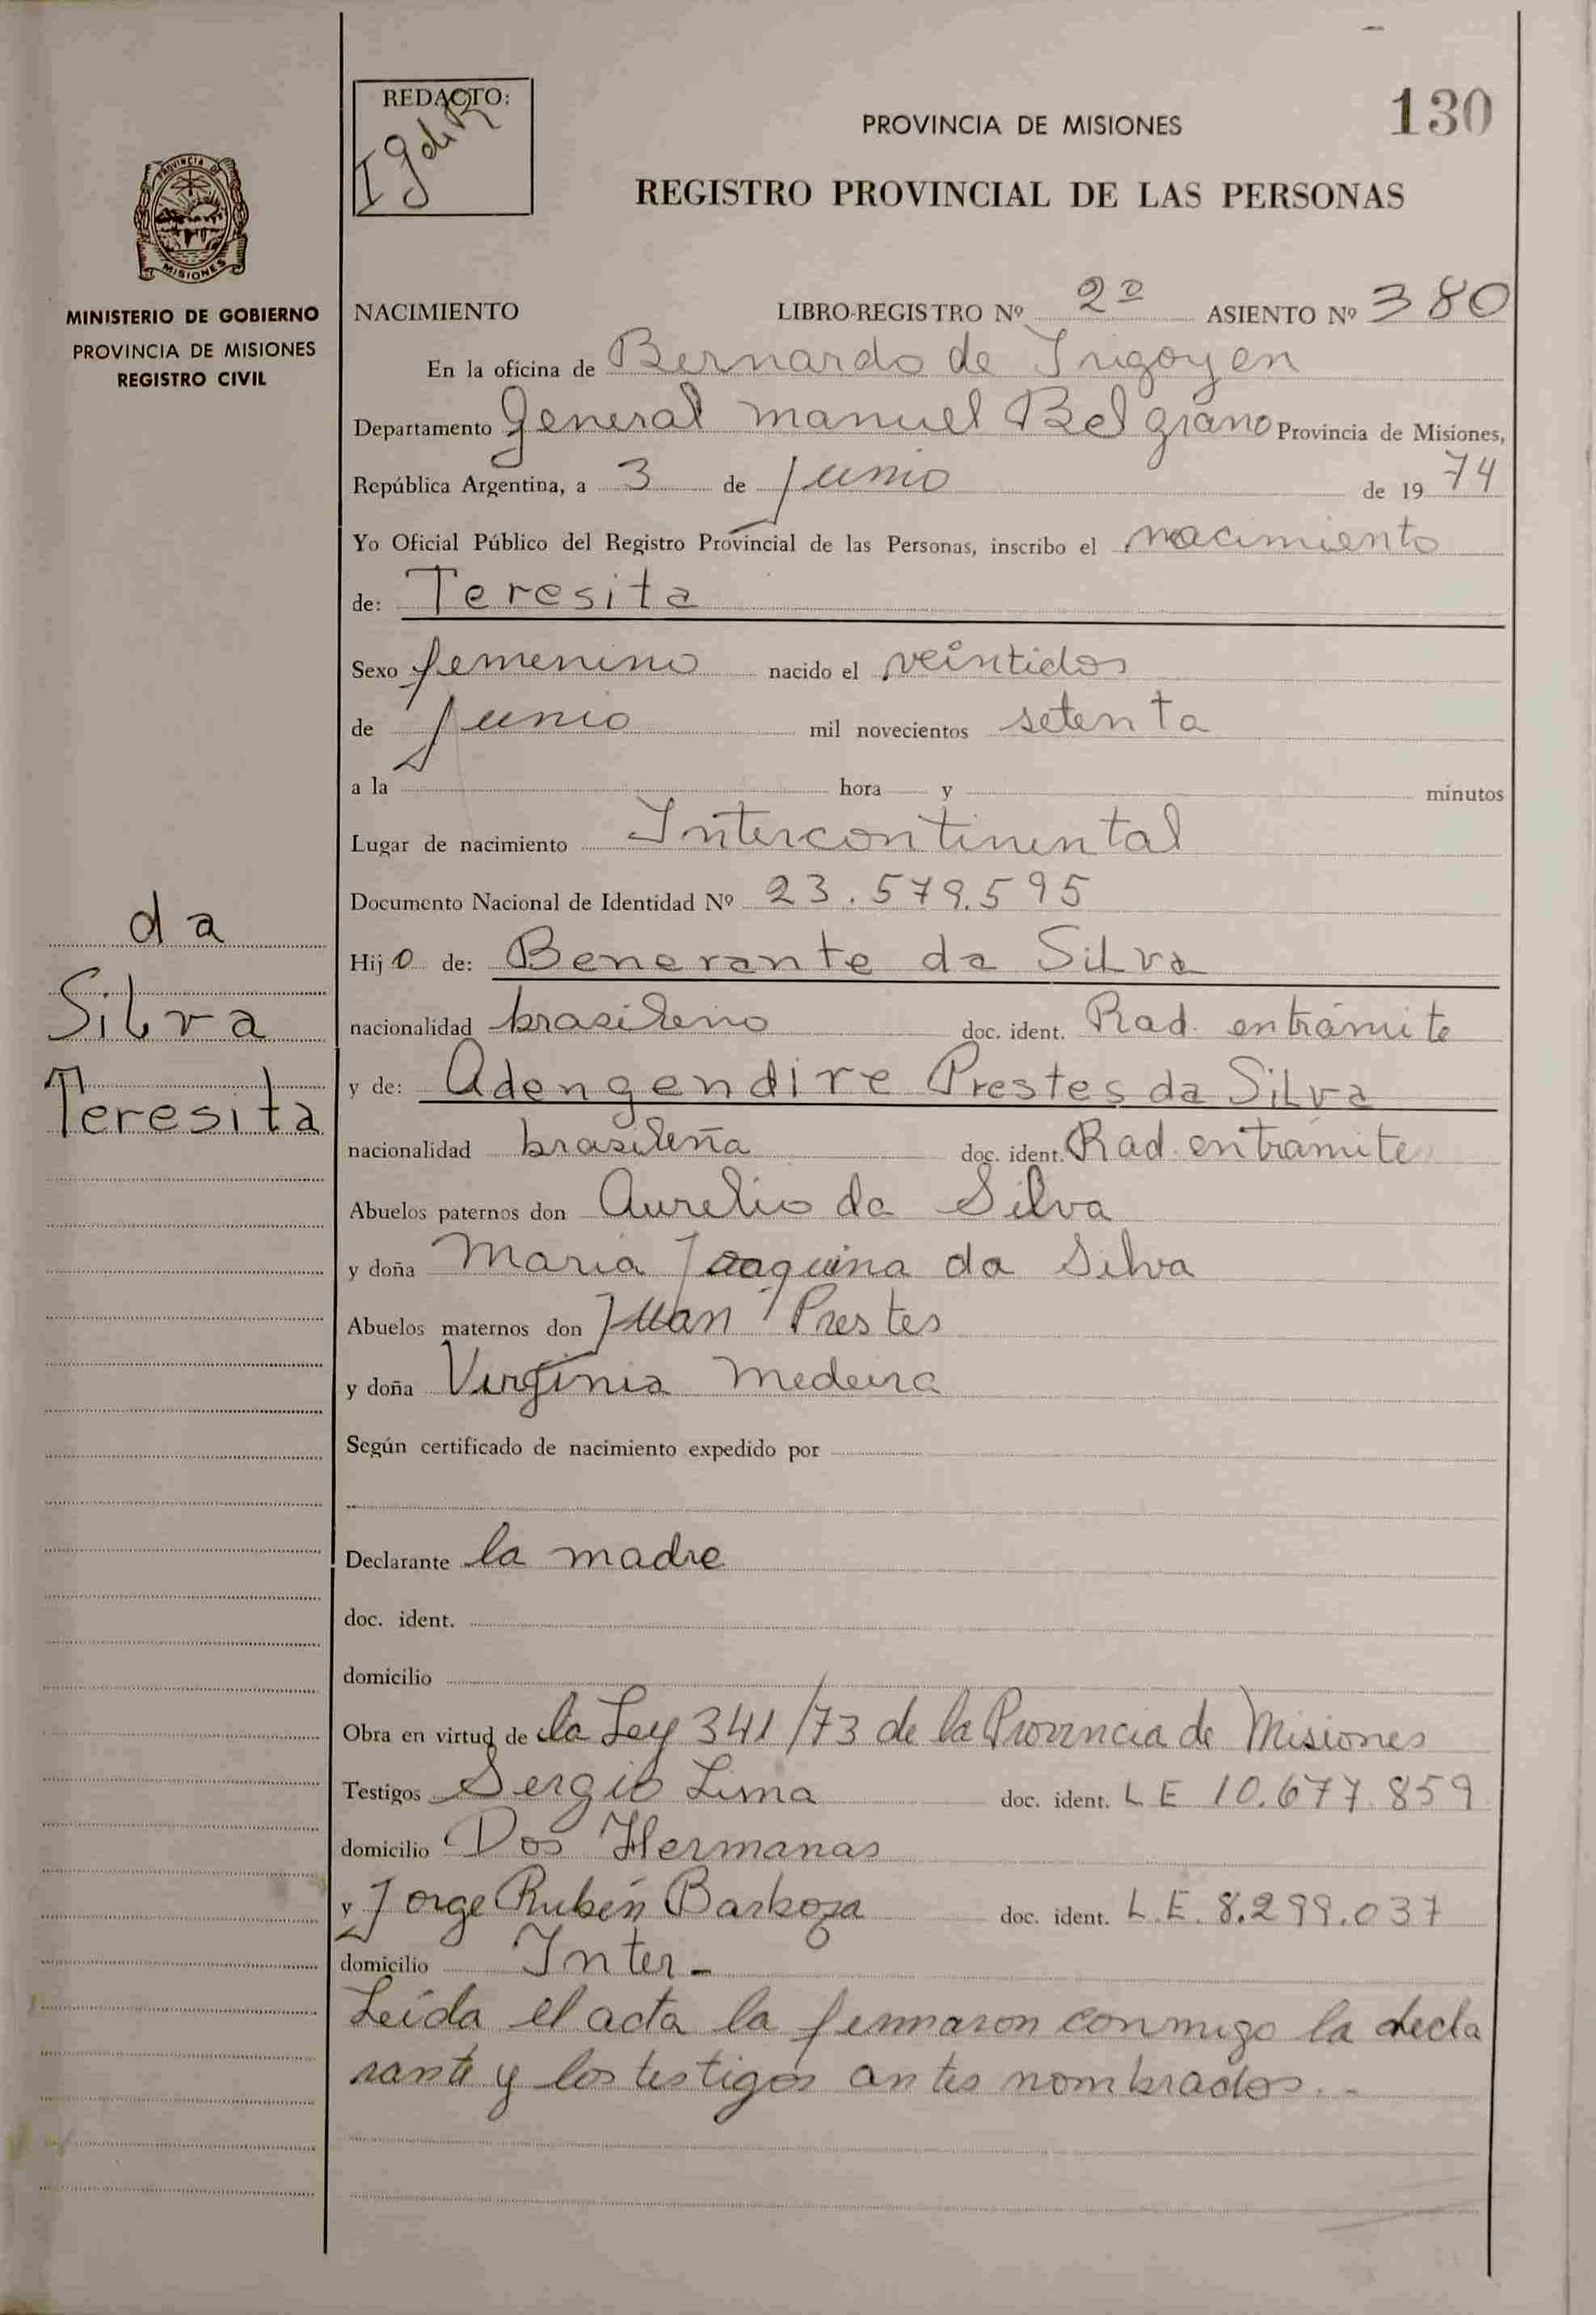 REDACTO:
PROVINCIA DE MISIONES
130
REGISTRO PROVINCIAL DE LAS PERSONAS
PROVINCIA DE
MISIONES
MINISTERIO DE GOBIERNO
PROVINCIA DE MISIONES
REGISTRO CIVIL
NACIMIENTO LIBRO-REGISTRO Nº 2º ASIENTO Nº 380
En la oficina de Bernardo de Irigoyen
Departamento General Manuel Belgrano Provincia de Misiones,
República Argentina, a 3 de Junio de 1974
Yo Oficial Público del Registro Provincial de las Personas, inscribo el nacimiento
de: Teresita
Sexo femenino nacido el veintidos
de Junio mil novecientos setenta
a la hora y minutos
Lugar de nacimiento Intercontinental
Documento Nacional de Identidad Nº 23.579.595
Hijo de: Benerante da Silva
nacionalidad brasileno doc. ident. Rad. entrámite
y de: Adengendire Prestes da Silva
nacionalidad brasileña doc. ident. Rad. entramite
Abuelos paternos don Aurelio da Silva
y doña Maria Joaquina da Silva
Abuelos maternos don Juan Prestes
y doña Virginia Medeira
Según certificado de nacimiento expedido por
Declarante la madre
doc. ident.
domicilio
Obra en virtud de la Ley 341/73 de la Provincia de Misiones
Testigos Sergio Lima doc. ident. LE 10.677.859
domicilio Dos Hermanas
y Jorge Rubén Barboza doc. ident. L.E. 8.299.037
domicilio Inter-
Leída el acta la firmaron conmigo la decla
rante y los testigos antes nombrados.-
da
Silva
Teresita